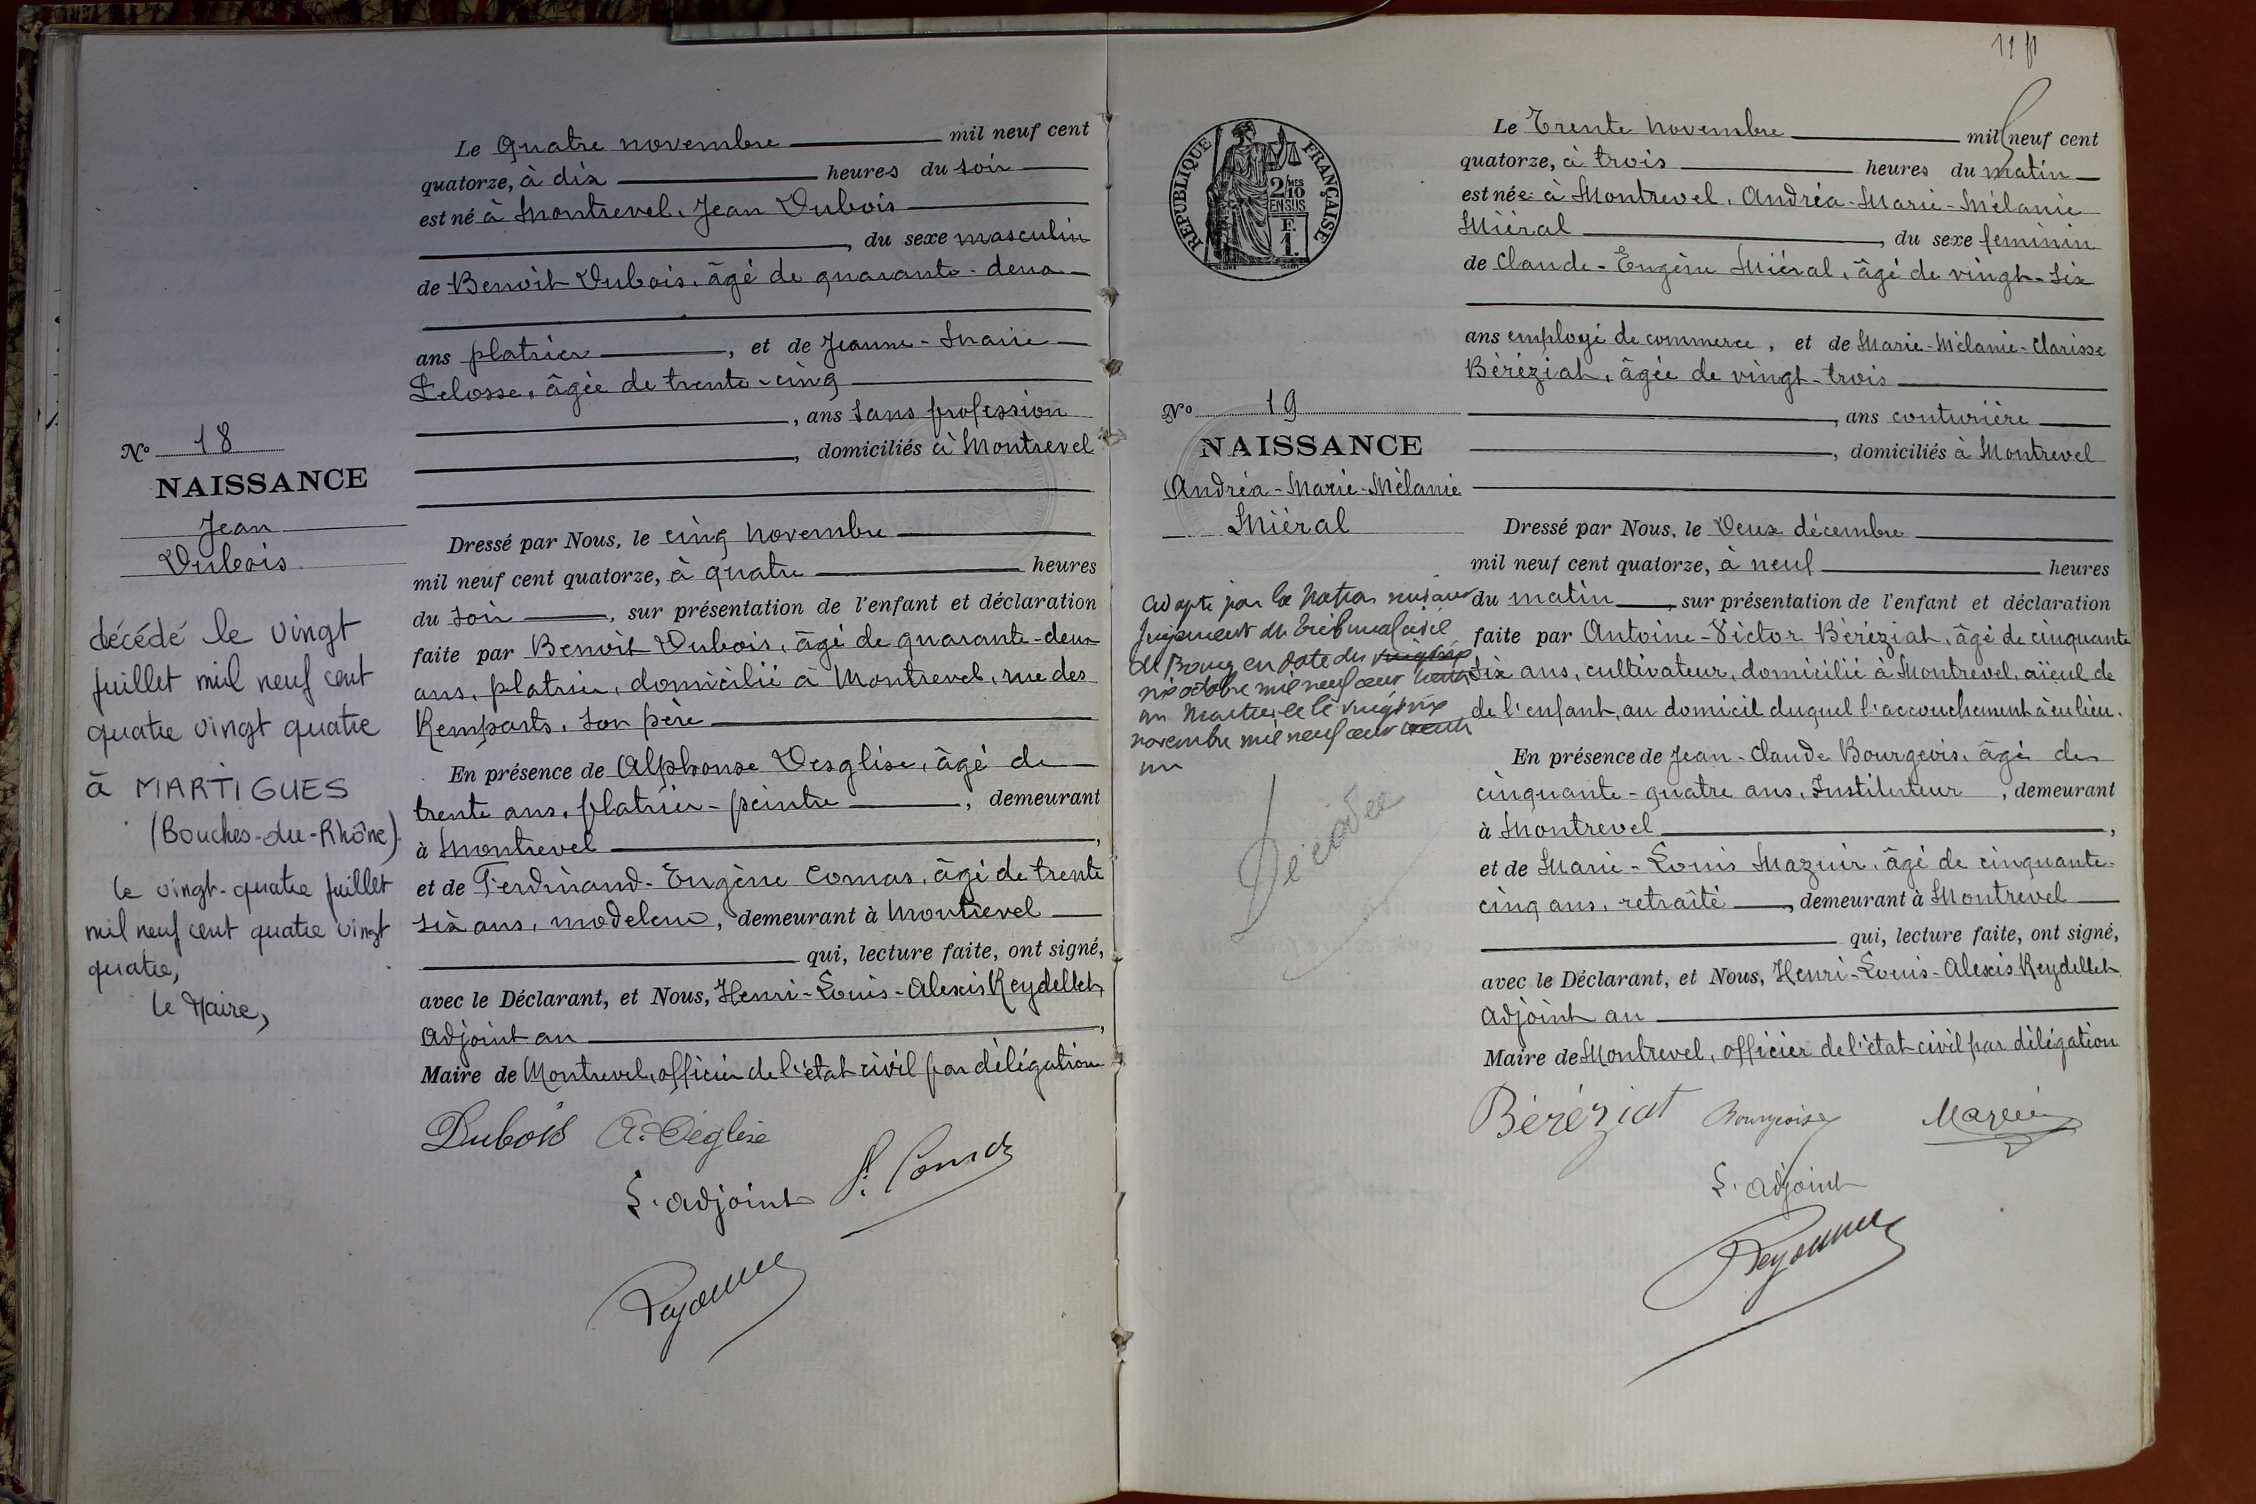 Le Quatre novembre mil neuf cent
quatorze, à dix heures du soir
est né à Montrevel, Jean Dubois
, du sexe masculin
de Benoit Dubois, âgé de quarante-deux
ans platrier, et de Jeanne-Marie
Delosse, âgée de trente-cinq
, ans sans profession
, domiciliés à Montrevel
No 18
NAISSANCE
Jean
Dubois
Dressé par Nous, le cinq novembre
mil neuf cent quatorze, à quatre heures
du soir, sur présentation de l'enfant et déclaration
faite par Benoit Dubois, âgé de quarante-deux
ans, platrier, domicilié à Montrevel, rue des
Remparts, son père
En présence de Alphonse Desglise, âgé de
trente ans, platrier-peintre, demeurant
à Montrevel,
et de Ferdinand-Eugène Comas, âgé de trente
six ans, modeleur, demeurant à Montrevel
qui, lecture faite, ont signé,
avec le Déclarant, et Nous, Henri-Louis-Alexis Reydellet,
Adjoint au,
Maire de Montrevel, officier de l'état civil par délégation
décédé le vingt
juillet mil neuf cent
quatre vingt quatre
à MARTIGUES
(Bouches-du-Rhône).
le vingt-quatre juillet
mil neuf cent quatre vingt
quatre,
le Maire,
Dubois A. Déglise
L'adjoint F. Comas
11
Le Trente novembre mil neuf cent
quatorze, à trois heures du matin
est née à Montrevel, Andréa-Marie-Mélanie
Miéral, du sexe feminin
de Claude-Eugène Miéral, âgé de vingt-six
ans employé de commerce, et de Marie-Mélanie-Clarisse
Béréziat, âgée de vingt-trois
, ans couturière
, domiciliés à Montrevel
RÉPUBLIQUE FRANÇAISE
2/MES
10
EN SUS
F.
1.
No 19
NAISSANCE
Andréa-Marie-Mélanie
Miéral
Dressé par Nous, le Deux décembre
mil neuf cent quatorze, à neuf heures
du matin, sur présentation de l'enfant et déclaration
faite par Antoine-Victor Béréziat, âgé de cinquante
six ans, cultivateur, domicilié à Montrevel, aïeul de
de l'enfant, au domicil duquel l'accouchement à eu lieu.
En présence de Jean-Claude Bourgeois, âgé de
cinquante-quatre ans, Instituteur, demeurant
à Montrevel,
et de Marie-Louis Mazuir, âgé de cinquante-
cinq ans, retraîté, demeurant à Montrevel
qui, lecture faite, ont signé,
avec le Déclarant, et Nous, Henri-Louis-Alexis Reydellet
Adjoint au
Maire de Montrevel, officier de l'état civil par délégation
Adopté par la Nation suivant
jugement du tribunal civil
de Bourg en date du
six octobre mil neuf cent
un le vingt six
novembre mil neuf cent trente
un
Décédée
Béréziat Bourgeois Mazuir
L'adjoint